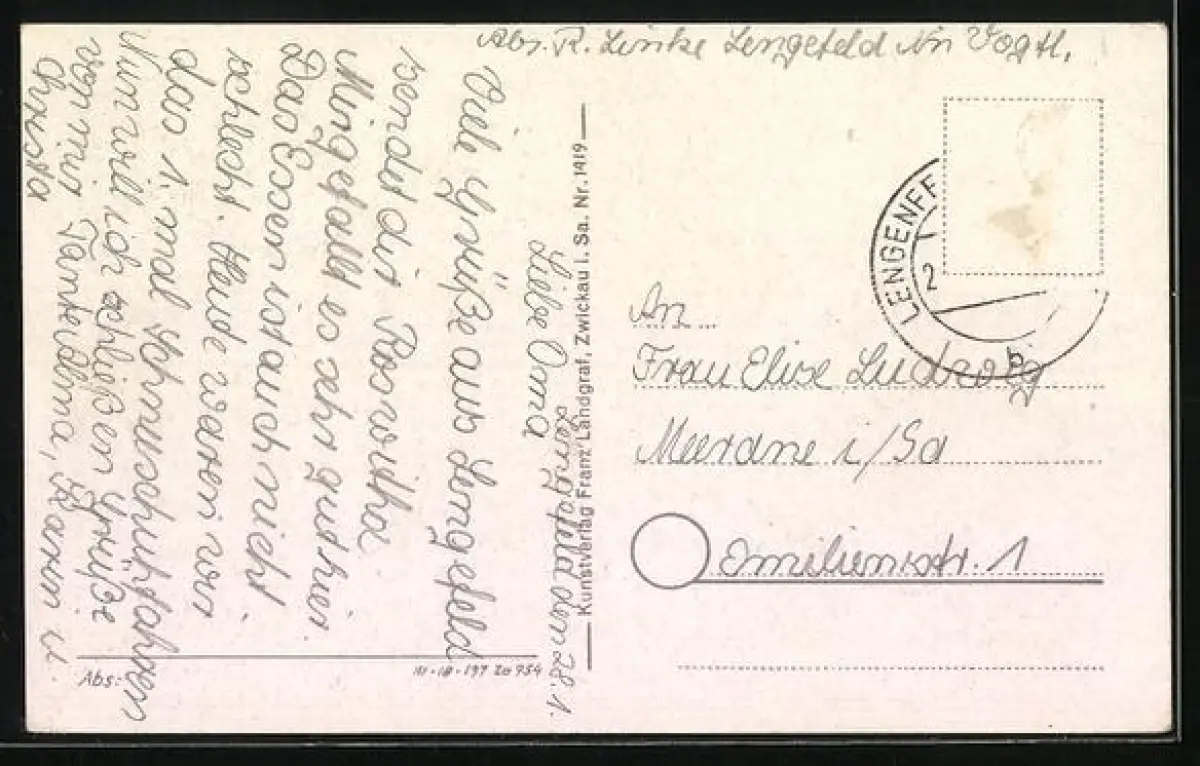 Abs. R. Linke Lengefeld Nr. Vogtl.
LENGENF
2
b
An
Frau Elise Ludwig
Meerane i/Sa
Emilienstr. 1
Kunstverlag Franz Landgraf, Zwickau i. Sa. Nr. 1419
Lengefeld den 28.1.
Liebe Oma
Viele Grüße aus Lengefeld
sendet dir Roswitha
Mir gefällt es sehr gut hier.
Das Essen ist auch nicht
schlecht. Heute waren wir
das 1. mal Schneeschuhfahren
Nun will ich schließen Grüße
von mir Tante Alma, Karin u.
Christa
Abs:
III-18-197 Zo 954